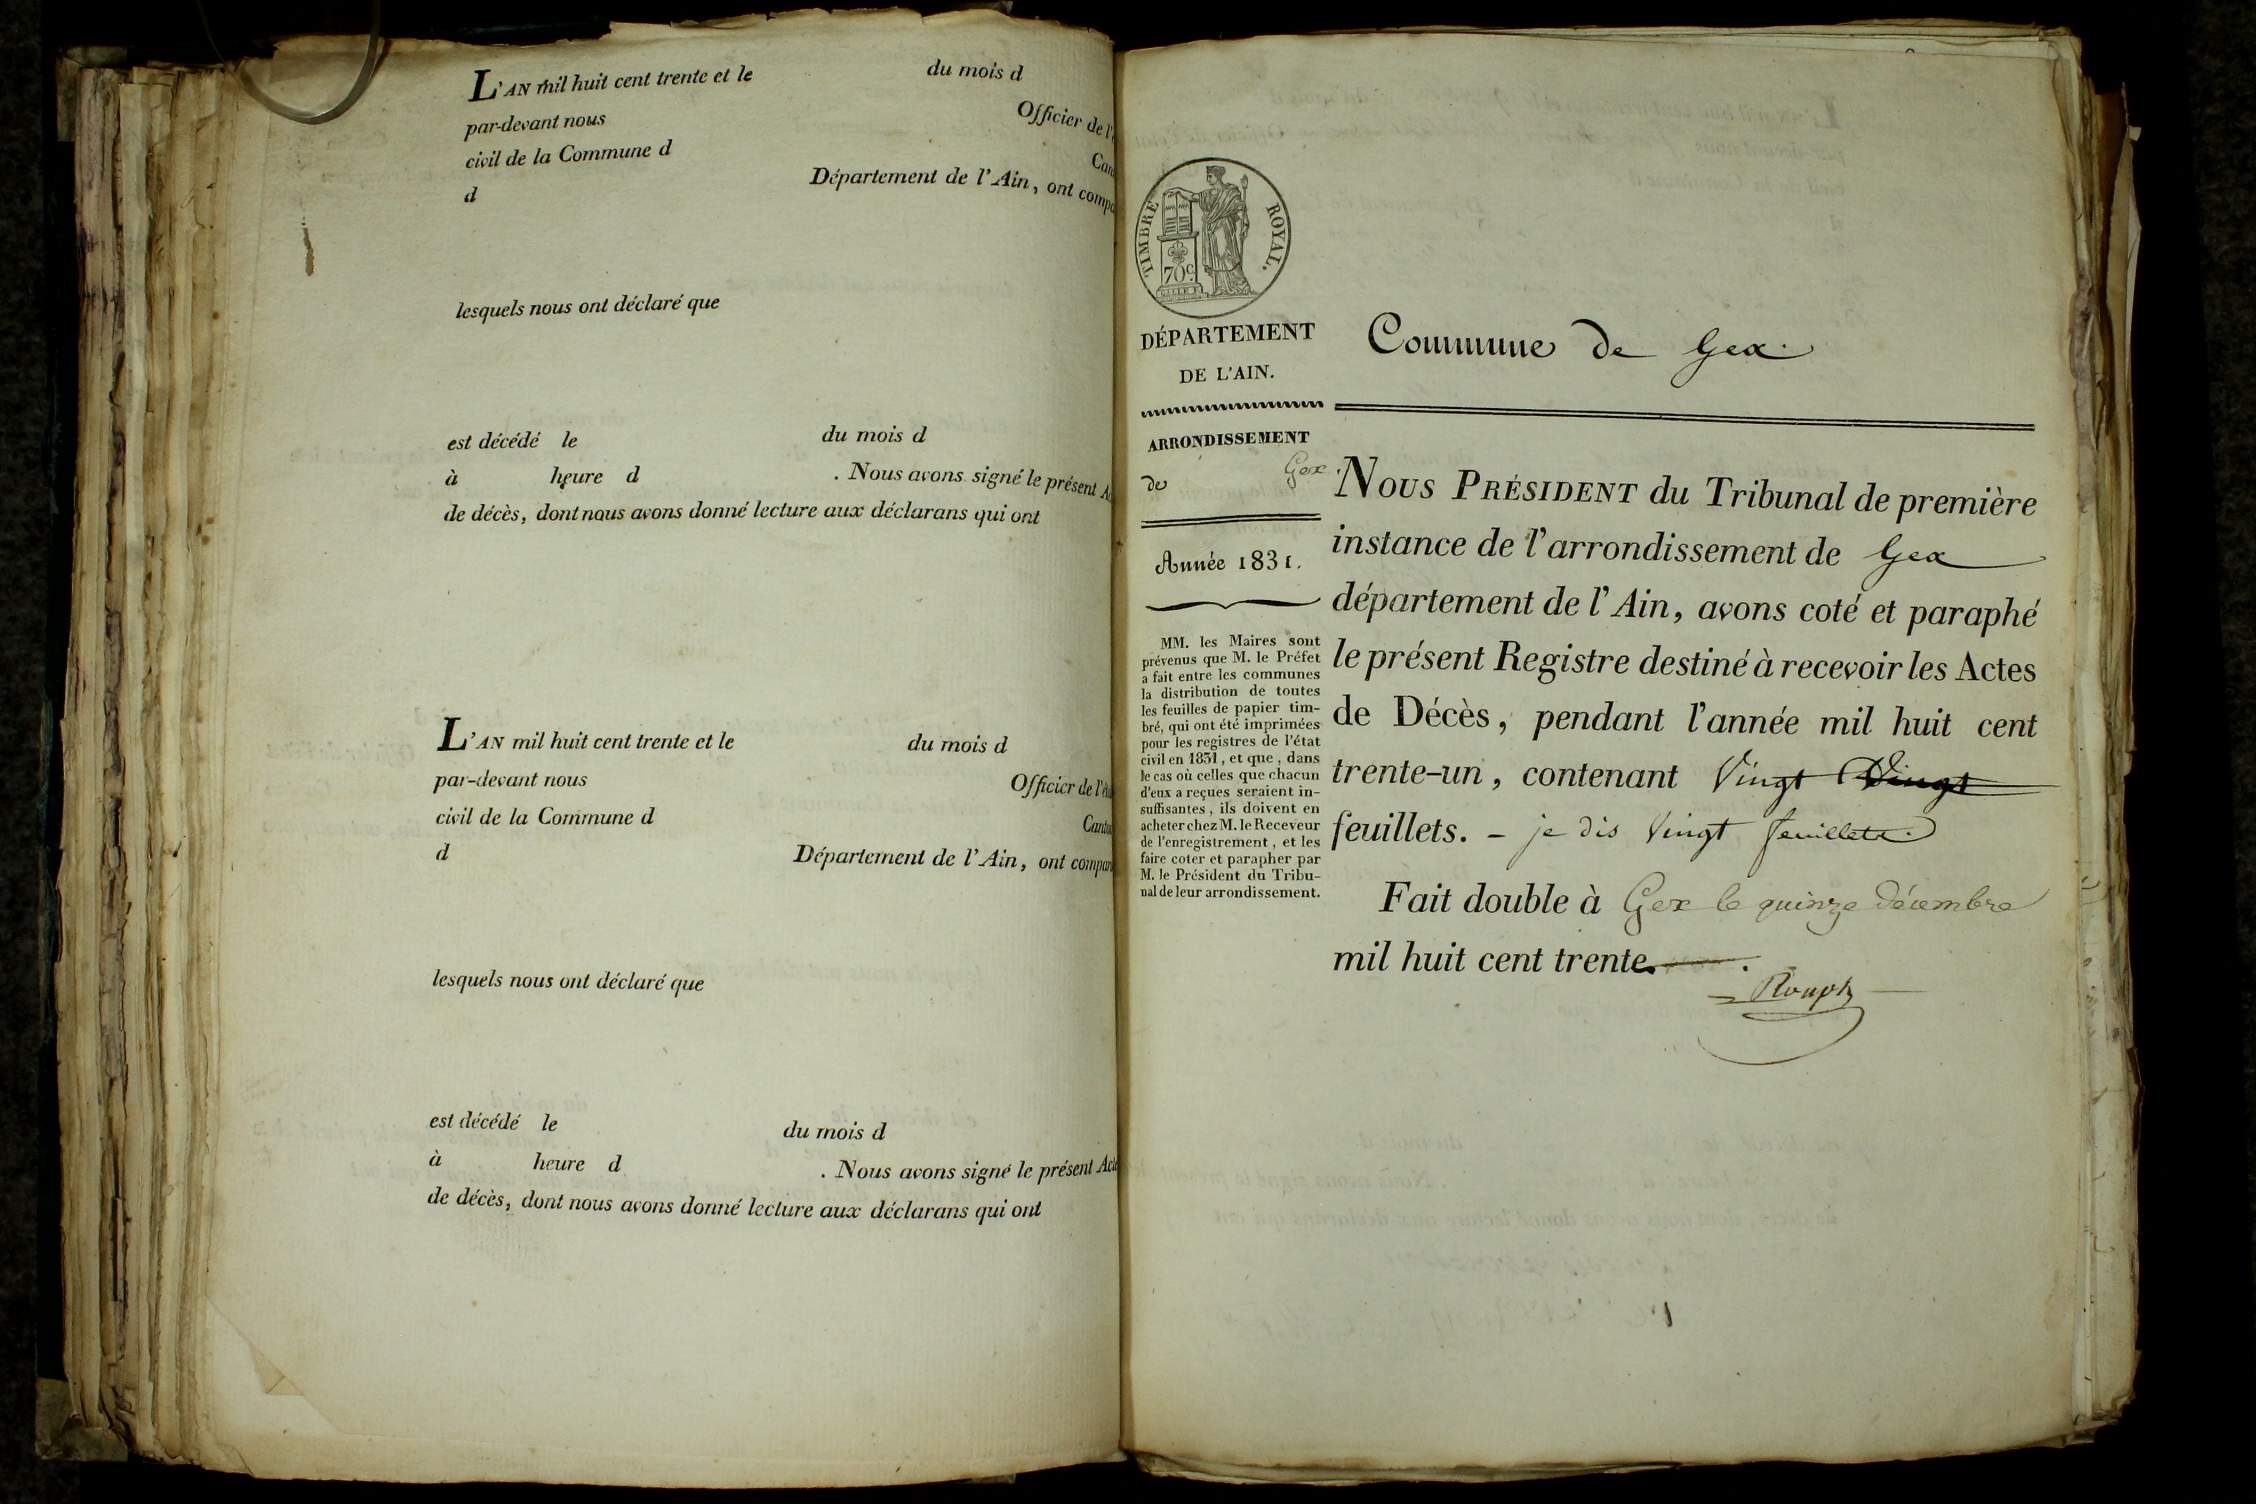 L'AN mil huit cent trente et le du mois d
par-devant nous Officier de l'
civil de la Commune d
d Département de l'Ain, ont
lesquels nous ont déclaré que
est décédé le du mois d
à heure d . Nous avons signé le présent
de décès, dont nous avons donné lecture aux déclarans qui ont
L'AN mil huit cent trente et le du mois d
par-devant nous Officier de
civil de la Commune d
d Département de l'Ain, ont
lesquels nous ont déclaré que
est décédé le du mois d
à heure d . Nous avons signé le présent Acte
de décès, dont nous avons donné lecture aux déclarans qui ont
TIMBRE ROYAL.
70c.
DÉPARTEMENT
DE L'AIN.
ARRONDISSEMENT
de Gex
Année 1831.
MM. les Maires sont
prévenus que M. le Préfet
a fait entre les communes
la distribution de toutes
les feuilles de papier tim-
bré, qui ont été imprimées
pour les registres de l'état
civil en 1831, et que, dans
le cas où celles que chacun
d'eux a reçues seraient in-
suffisantes, ils doivent en
acheter chez M. le Receveur
de l'enregistrement, et les
faire coter et parapher par
M. le Président du Tribu-
nal de leur arrondissement.
Commune de Gex.
NOUS PRÉSIDENT du Tribunal de première
instance de l'arrondissement de Gex
département de l'Ain, avons coté et paraphé
le présent Registre destiné à recevoir les Actes
de Décès, pendant l'année mil huit cent
trente-un, contenant Vingt Vingt
feuillets. - je dis Vingt feuillets.
Fait double à Gex le quinze décembre
mil huit cent trente.